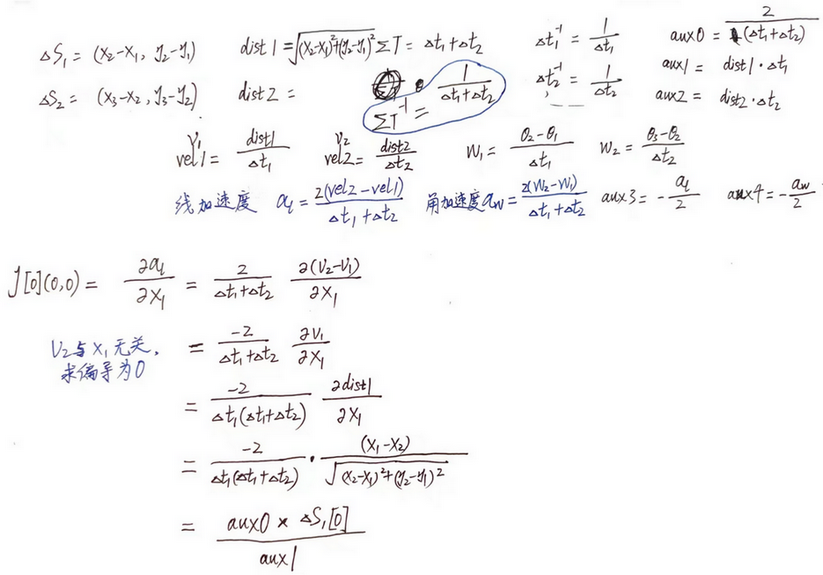 ΔS₁ = (x₂-x₁, y₂-y₁) dist1 = √((x₂-x₁)²+(y₂-y₁)²) ΣT = Δt₁+Δt₂ Δt₁⁻¹ = 1/Δt₁ aux0 = 2/(Δt₁+Δt₂)
ΔS₂ = (x₃-x₂, y₃-y₂) dist2 = ΣT⁻¹ = 1/(Δt₁+Δt₂) Δt₂⁻¹ = 1/Δt₂ aux1 = dist1·Δt₁
aux2 = dist2·Δt₂
V₁ vel1 = dist1/Δt₁ V₂ vel2 = dist2/Δt₂ W₁ = (θ₂-θ₁)/Δt₁ W₂ = (θ₃-θ₂)/Δt₂
线加速度 aₗ = 2(vel2-vel1)/(Δt₁+Δt₂) 角加速度 a_w = 2(W₂-W₁)/(Δt₁+Δt₂) aux3 = -aₗ/2 aux4 = -a_w/2
J[0](0,0) = ∂aₗ/∂x₁ = 2/(Δt₁+Δt₂) ∂(V₂-V₁)/∂x₁
V₂与x₁无关,
求偏导为0
= -2/(Δt₁+Δt₂) ∂V₁/∂x₁
= -2/(Δt₁(Δt₁+Δt₂)) ∂dist1/∂x₁
= -2/(Δt₁(Δt₁+Δt₂)) · (x₁-x₂)/√((x₂-x₁)²+(y₂-y₁)²)
= (aux0 × ΔS₁[0])/aux1